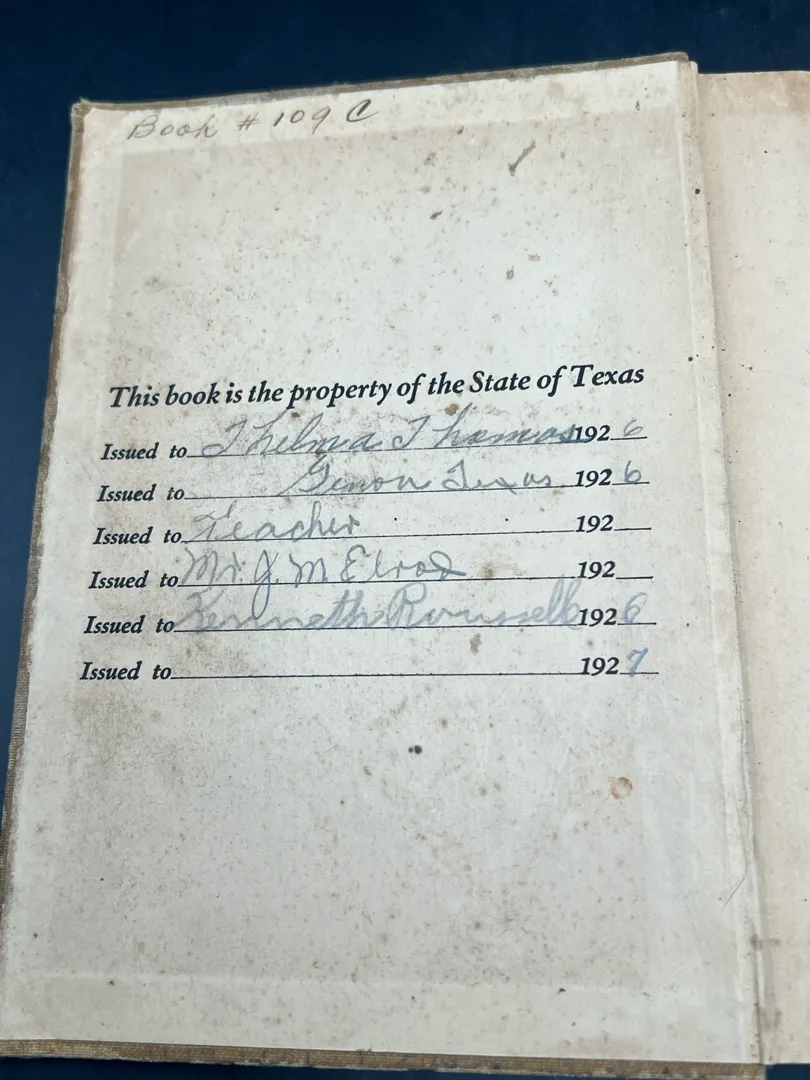 Book # 109 C
This book is the property of the State of Texas
Issued to Thelma Thomas 1926
Issued to Texas 1926
Issued to Teacher 192
Issued to Mr. J. M Elrod 192
Issued to Kenneth 1926
Issued to 1927